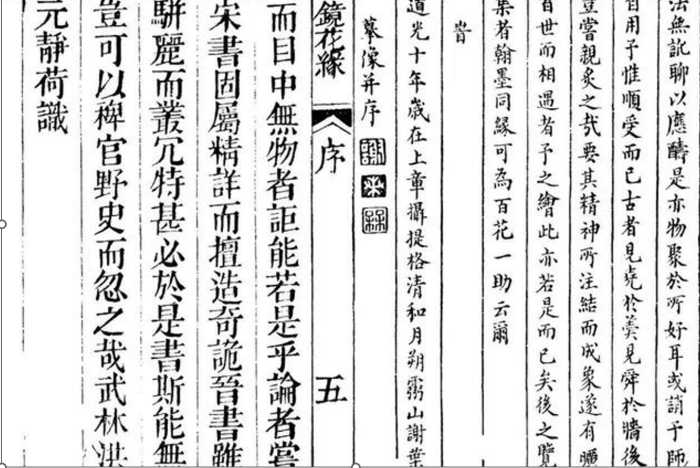 法無訛聊以應醻是亦物聚於所好耳或誚予師
自用予惟順受而已古者見堯於羹見舜於牆後
豈嘗親炙之哉要其精神所注結而成象遂有曠
百世而相遇者予之繪此亦若是而已矣後之覽
集者翰墨同緣可為百花一助云爾
旹
道光十年歲在上章攝提格清和月朔山謝葉
摹像并序
鏡花緣 序 五
而目中無物者詎能若是乎論者嘗
宋書固屬精詳而擅造奇詭晉書雖
駢麗而叢冗特甚必於是書斯能無
豈可以稗官野史而忽之哉武林洪
元靜荷識